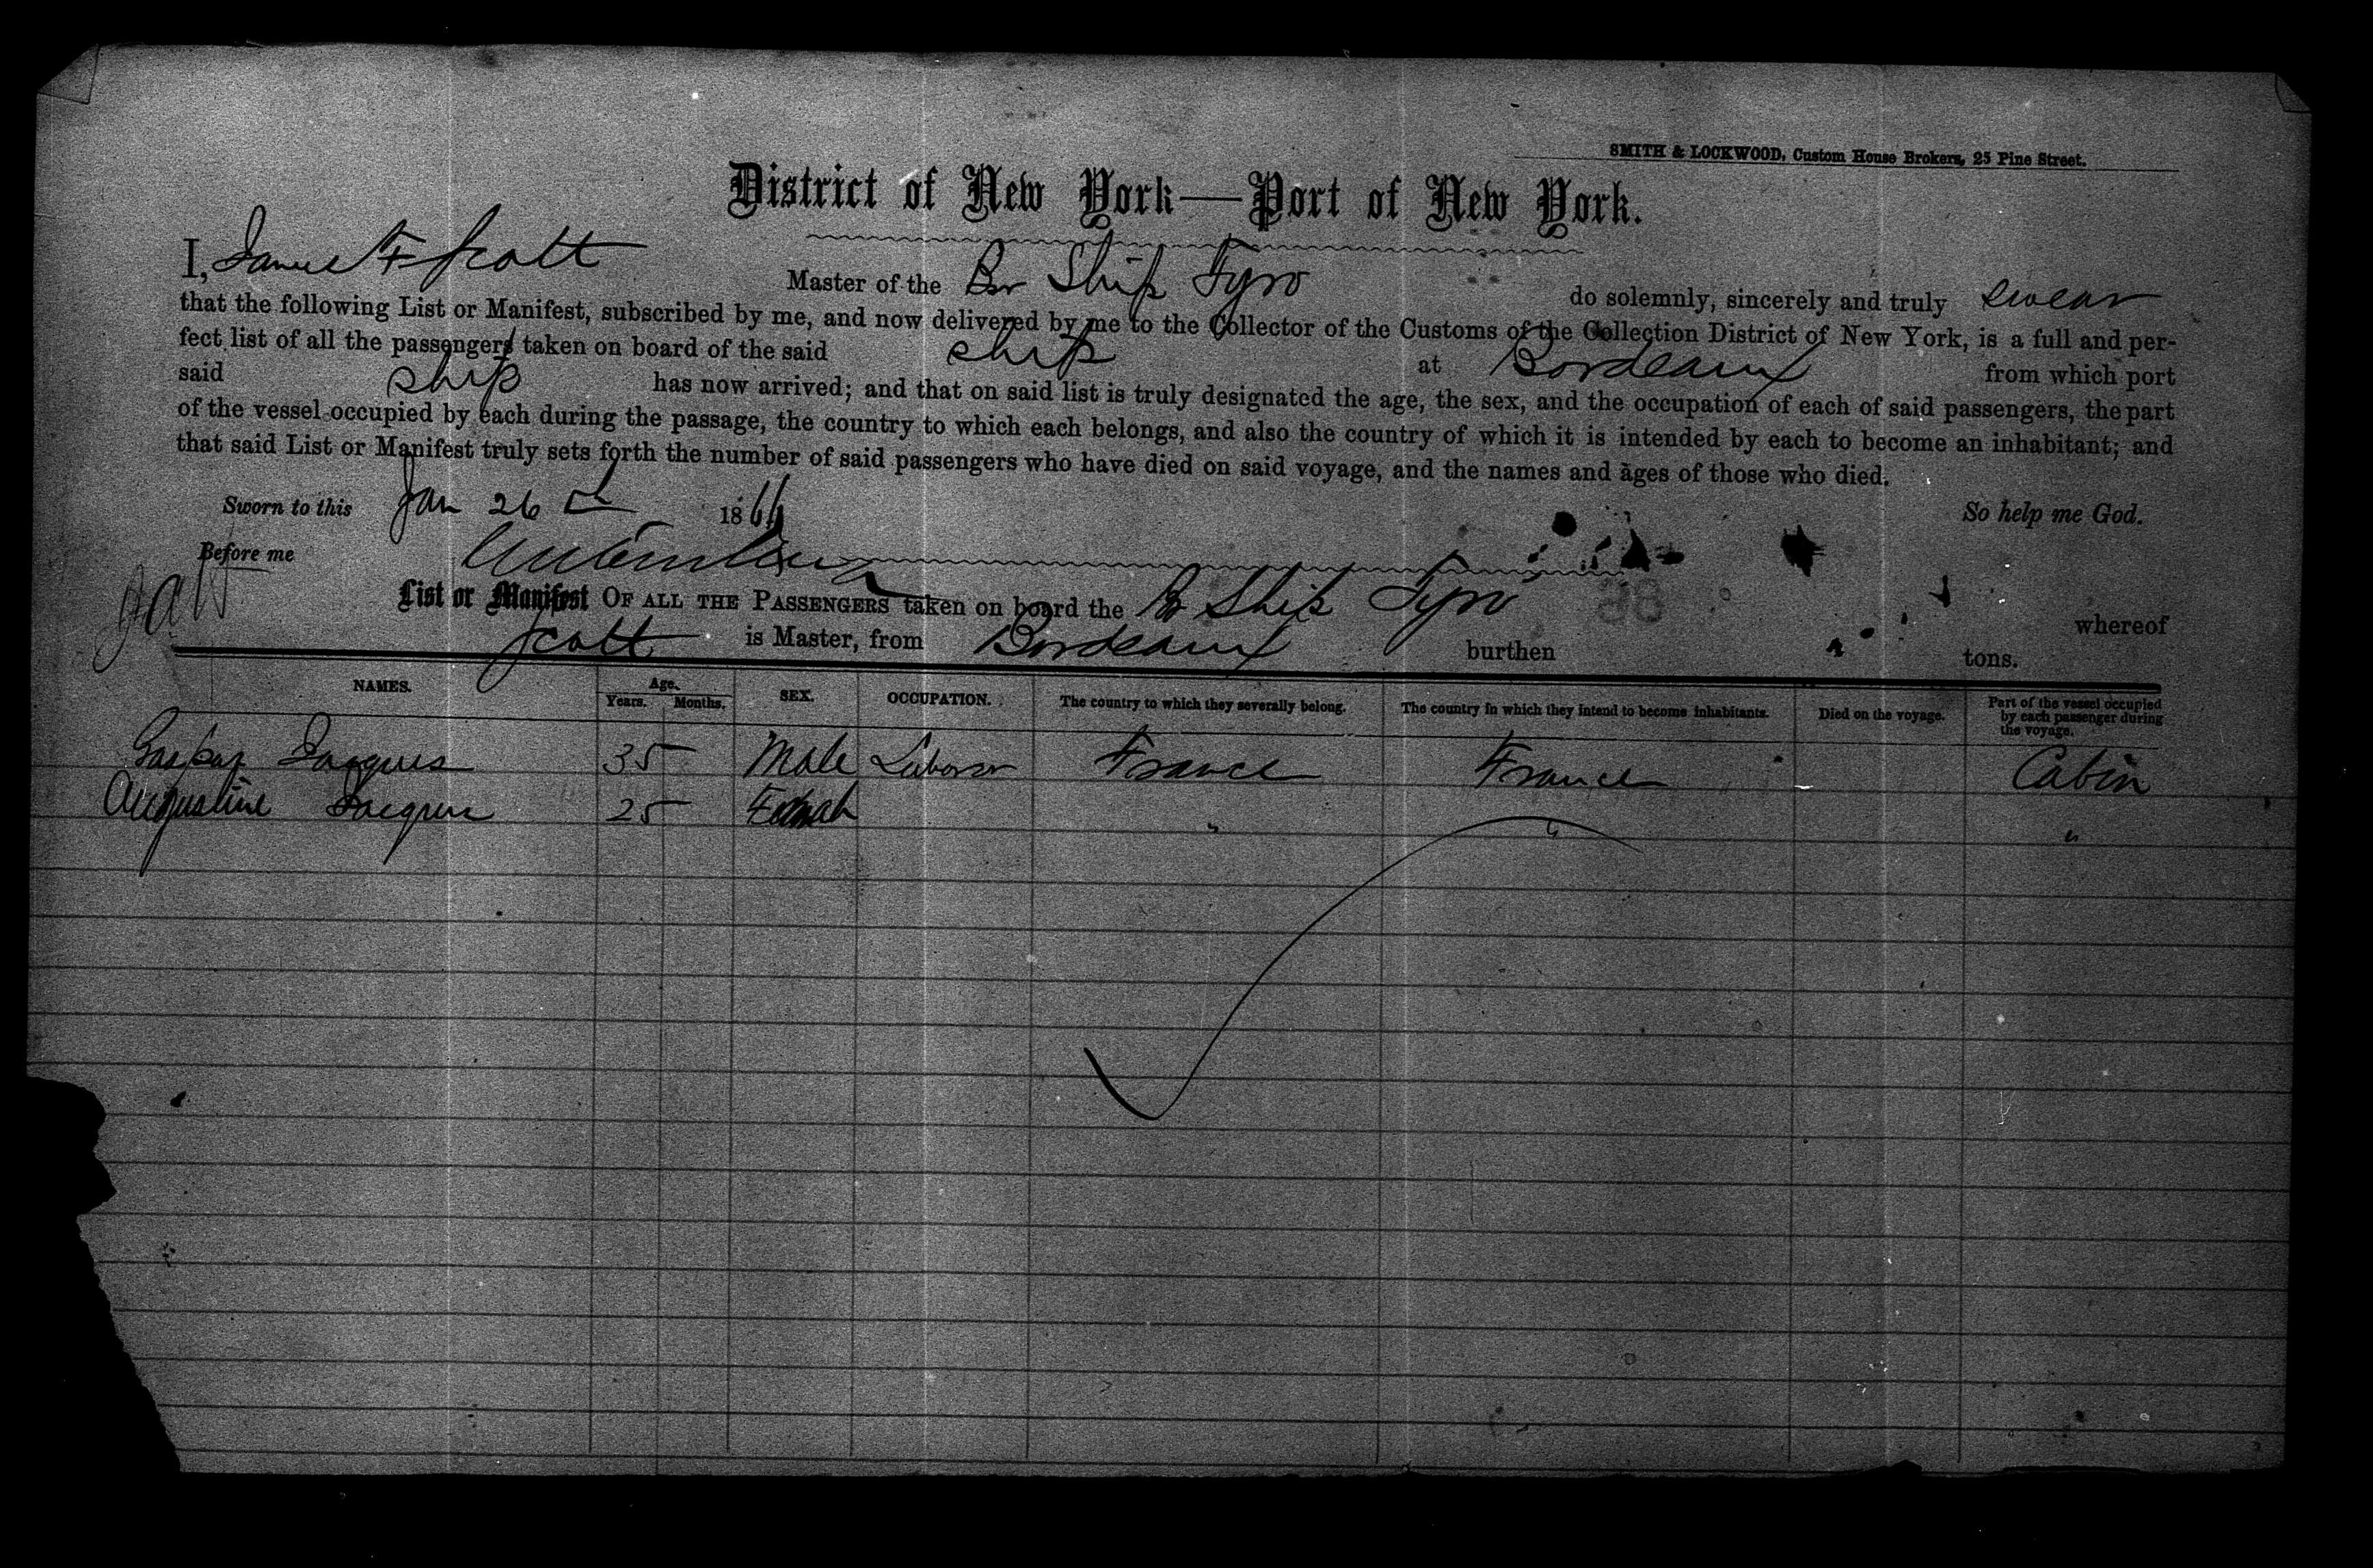 SMITH & LOCKWOOD, Custom House Brokers, 25 Pine Street.
District of New York—Port of New York.
I, James F Scott Master of the Br Ship Tyro do solemnly, sincerely and truly swear
that the following List or Manifest, subscribed by me, and now delivered by me to the Collector of the Customs of the Collection District of New York, is a full and per-
fect list of all the passengers taken on board of the said ship at Bordeaux from which port
said ship has now arrived; and that on said list is truly designated the age, the sex, and the occupation of each of said passengers, the part
of the vessel occupied by each during the passage, the country to which each belongs, and also the country of which it is intended by each to become an inhabitant; and
that said List or Manifest truly sets forth the number of said passengers who have died on said voyage, and the names and ages of those who died.
Sworn to this Jan 26 1866 So help me God.
Before me
List or Manifest OF ALL THE PASSENGERS taken on board the Br Ship Tyro whereof
Scott is Master, from Bordeaux burthen tons.
NAMES. Age. Years. Months. SEX. OCCUPATION. The country to which they severally belong. The country in which they intend to become inhabitants. Died on the voyage. Part of the vessel occupied by each passenger during the voyage.
Gaspar Jacques 35 Male Laborer France France Cabin
Augustine Jacques 25 Female " " "